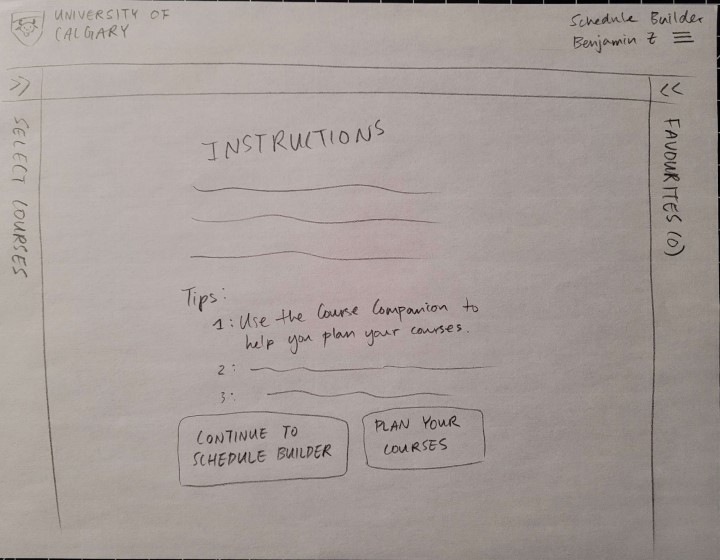 UNIVERSITY OF
CALGARY
Schedule Builder
Benjamin Z
>>
<<
SELECT COURSES
FAVOURITES (0)
INSTRUCTIONS
Tips:
1: Use the Course Companion to
help you plan your courses.
2:
3:
CONTINUE TO
SCHEDULE BUILDER
PLAN YOUR
COURSES